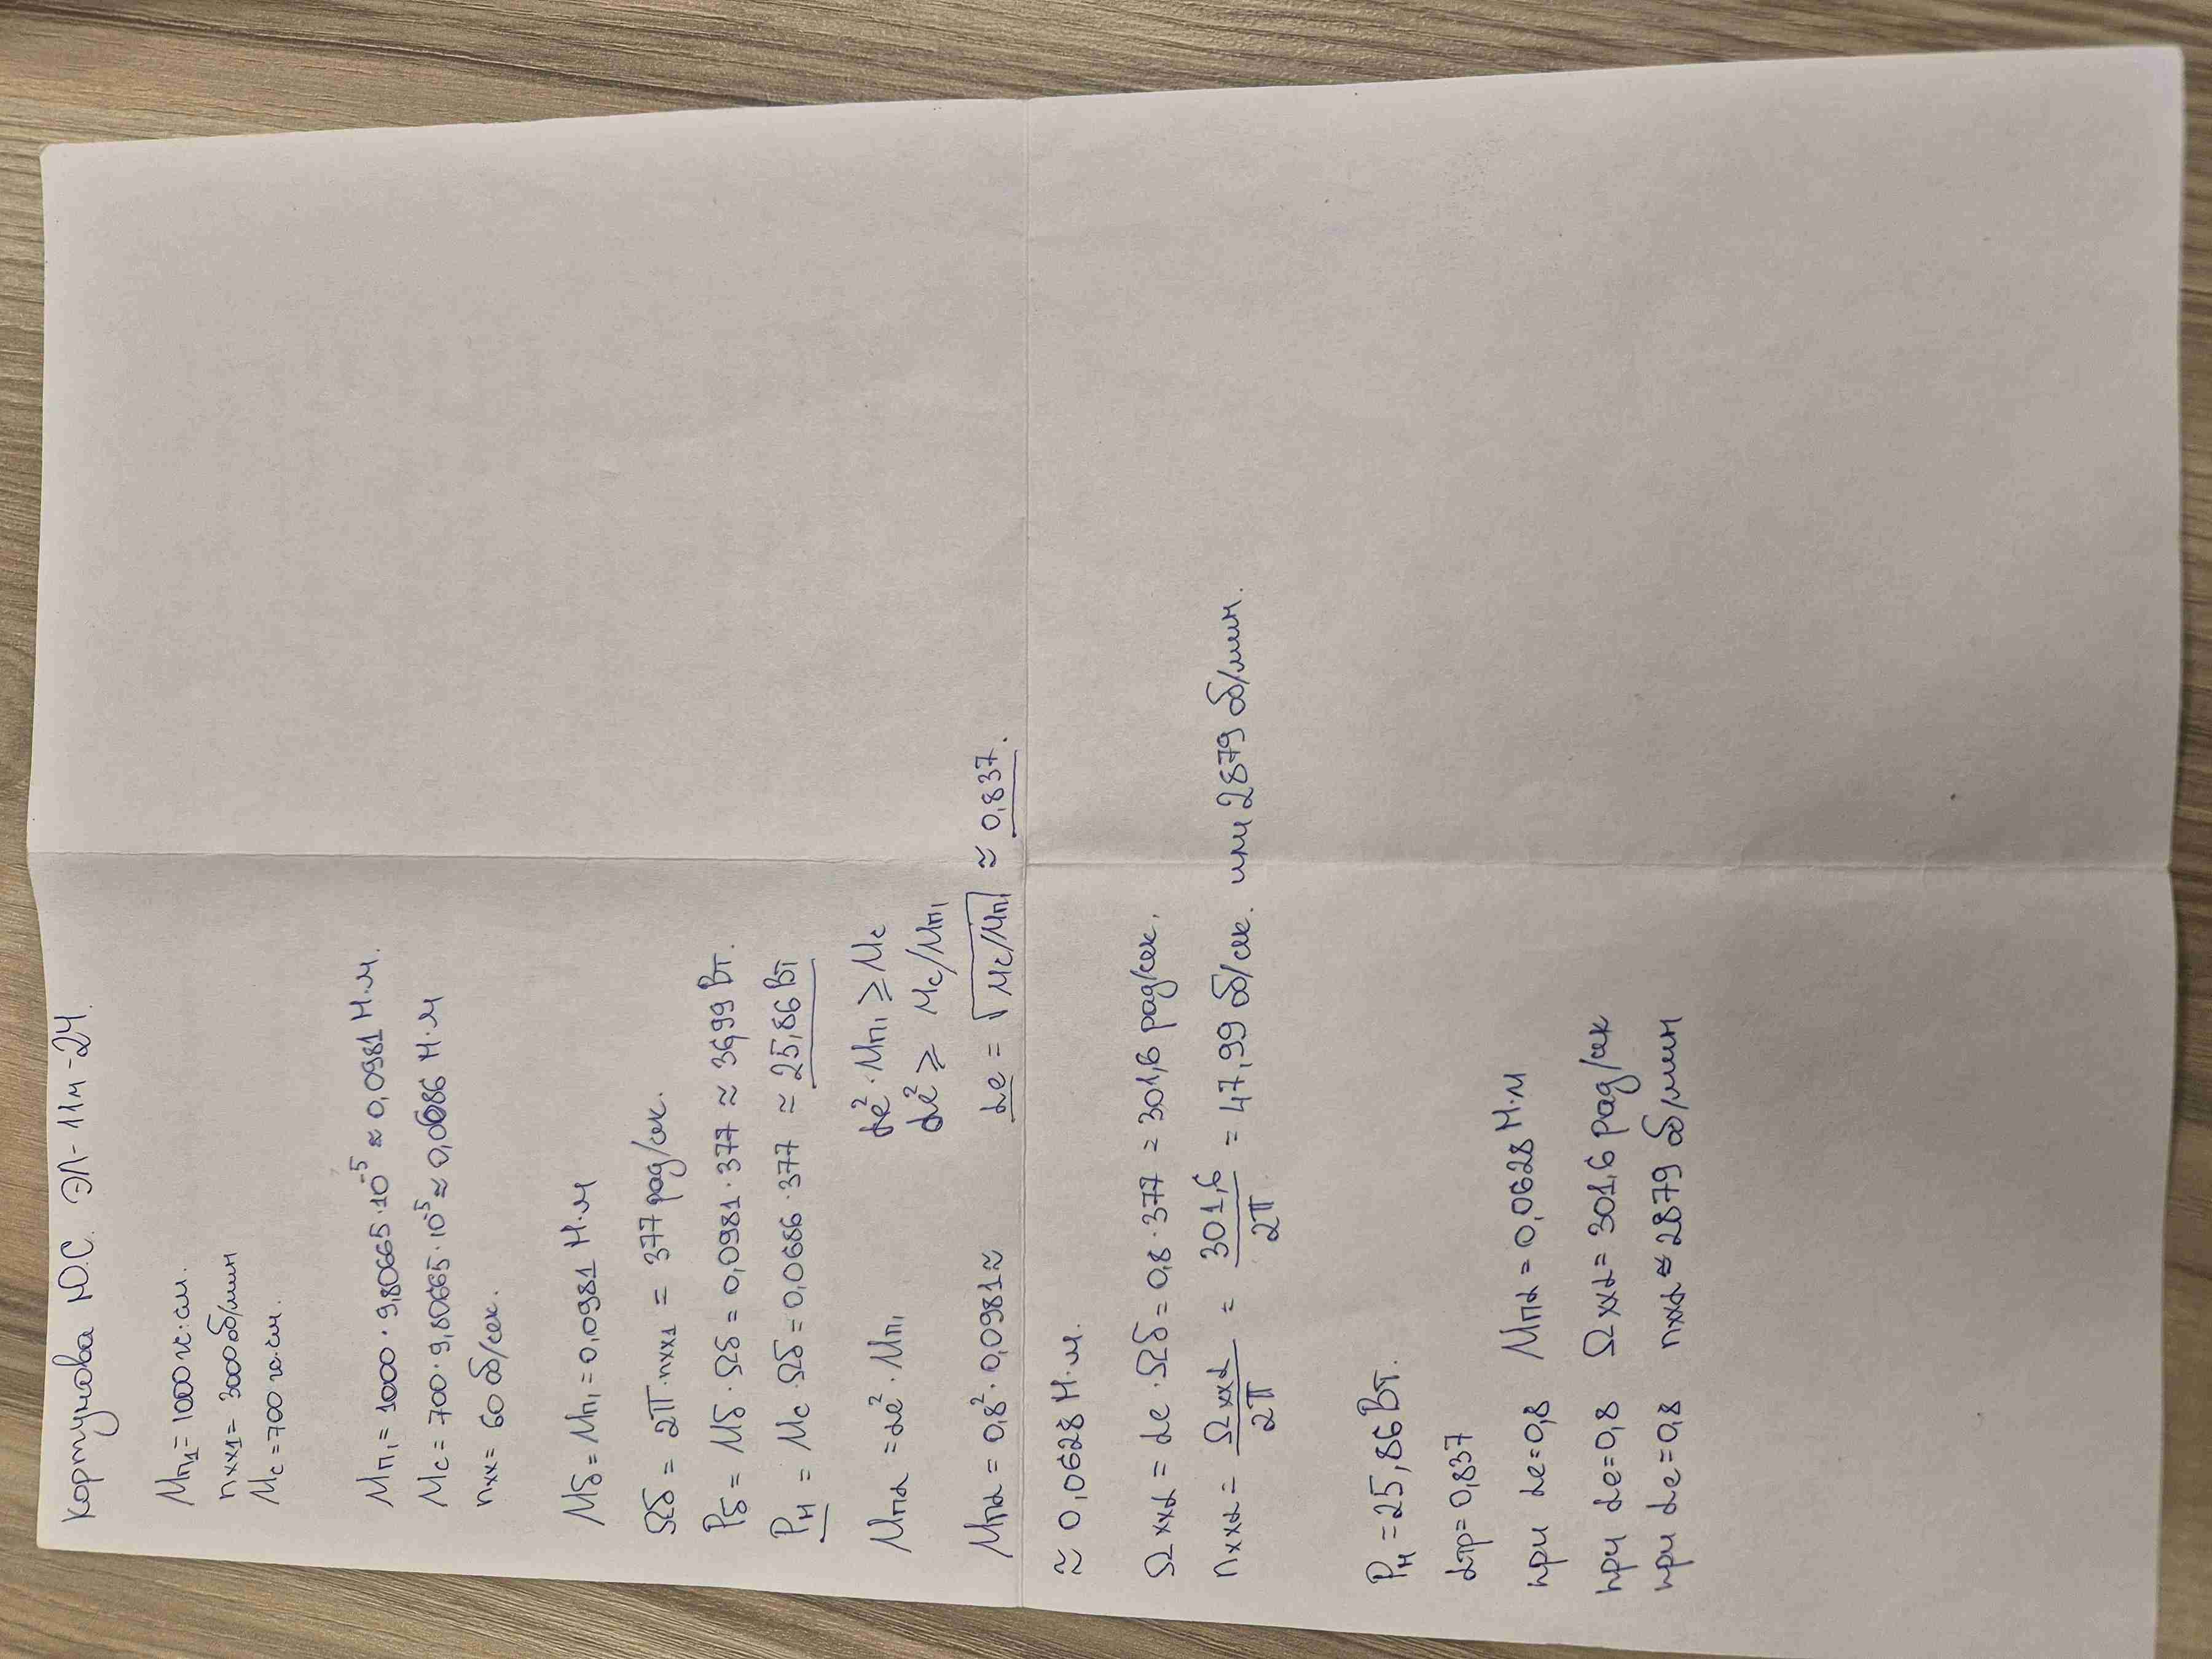 Кортунова Ю.С. ЭЛ-11м-24.
Mп1 = 1000 гс·см.
nxx1 = 3000 об/мин
Mc = 700 гс·см.
Mп1 = 1000 · 9,80665·10^-5 ≈ 0,0981 Н·м.
Mc = 700 · 9,80665·10^-5 ≈ 0,0686 Н·м
nxx = 60 об/сек.
Mδ = Mп1 = 0,0981 Н·м
Ωδ = 2π·nxx1 = 377 рад/сек.
Pδ = Mδ·Ωδ = 0,0981·377 ≈ 36,99 Вт.
Pн = Mc·Ωδ = 0,0686·377 ≈ 25,86 Вт
Mпα = αe²·Mп1 αe²·Mп1 ≥ Mc
αe² ≥ Mc/Mп1
Mпα = 0,8²·0,0981 ≈ αe = √Mc/Mп1 ≈ 0,837.
≈ 0,0628 Н·м.
Ωxxα = αe·Ωδ = 0,8·377 = 301,6 рад/сек.
nxxα = Ωxxα/2π = 301,6/2π = 47,99 об/сек. или 2879 об/мин.
Pн = 25,86 Вт.
αтр = 0,837
при αe=0,8 Mпα = 0,0628 Н·м
при αe=0,8 Ωxxα = 301,6 рад/сек
при αe=0,8 nxxα ≈ 2879 об/мин